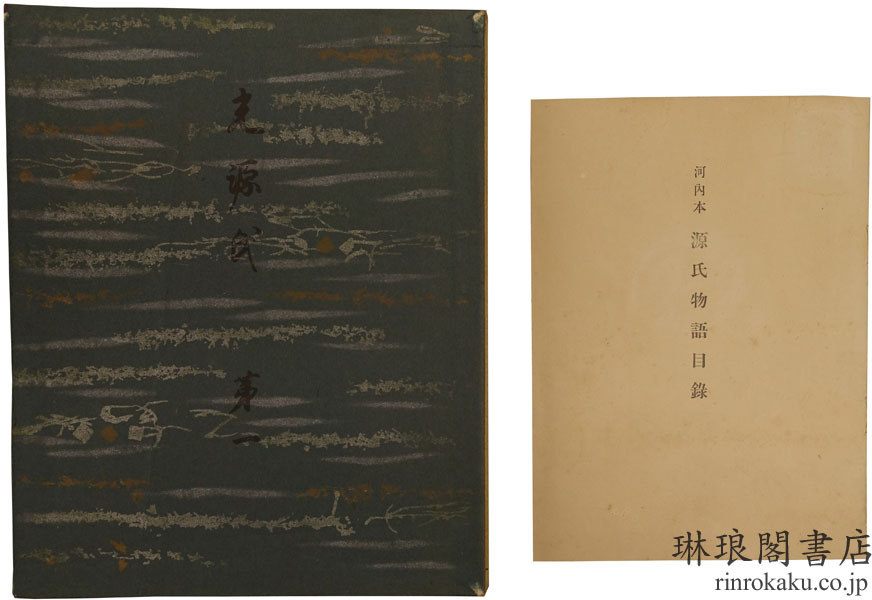 光源氏 第一
河內本 源氏物語目錄
琳琅閣書店
rinrokaku.co.jp